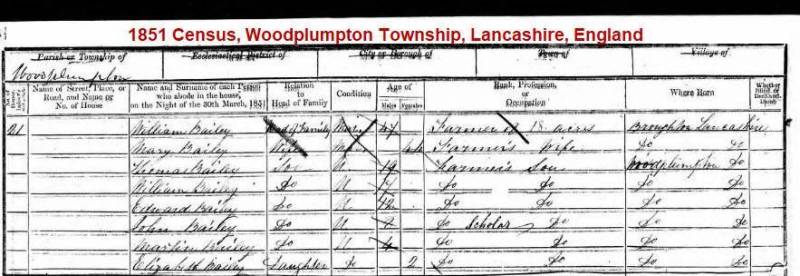 1851 Census, Woodplumpton Township, Lancashire, England
Parish or Township of Ecclesiastical District of City or Borough of Town of Village of
Woodplumpton
Name of Street, Place, or Road, and Name or No. of House
Name and Surname of each Person who abode in the house, on the Night of the 30th March, 1851
Relation to Head of Family
Condition
Age of
Males Females
Rank, Profession, or Occupation
Where Born
Whether Blind, or Deaf-and-Dumb
21 William Bailey Head of Family Mar 47 Farmer of 18 acres Broughton Lancashire
Mary Bailey Wife M Farmer's Wife Do Do
Thomas Bailey Son U 19 Farmer's Son Woodplumpton Do
William Bailey Do U Do Do Do Do
Edward Bailey Do U 12 Do Do Do Do
John Bailey Do U 7 Do Scholar Do Do Do
Martin Bailey Do U 4 Do Do Do Do
Elizabeth Bailey Daughter Do 2 Do Do Do Do